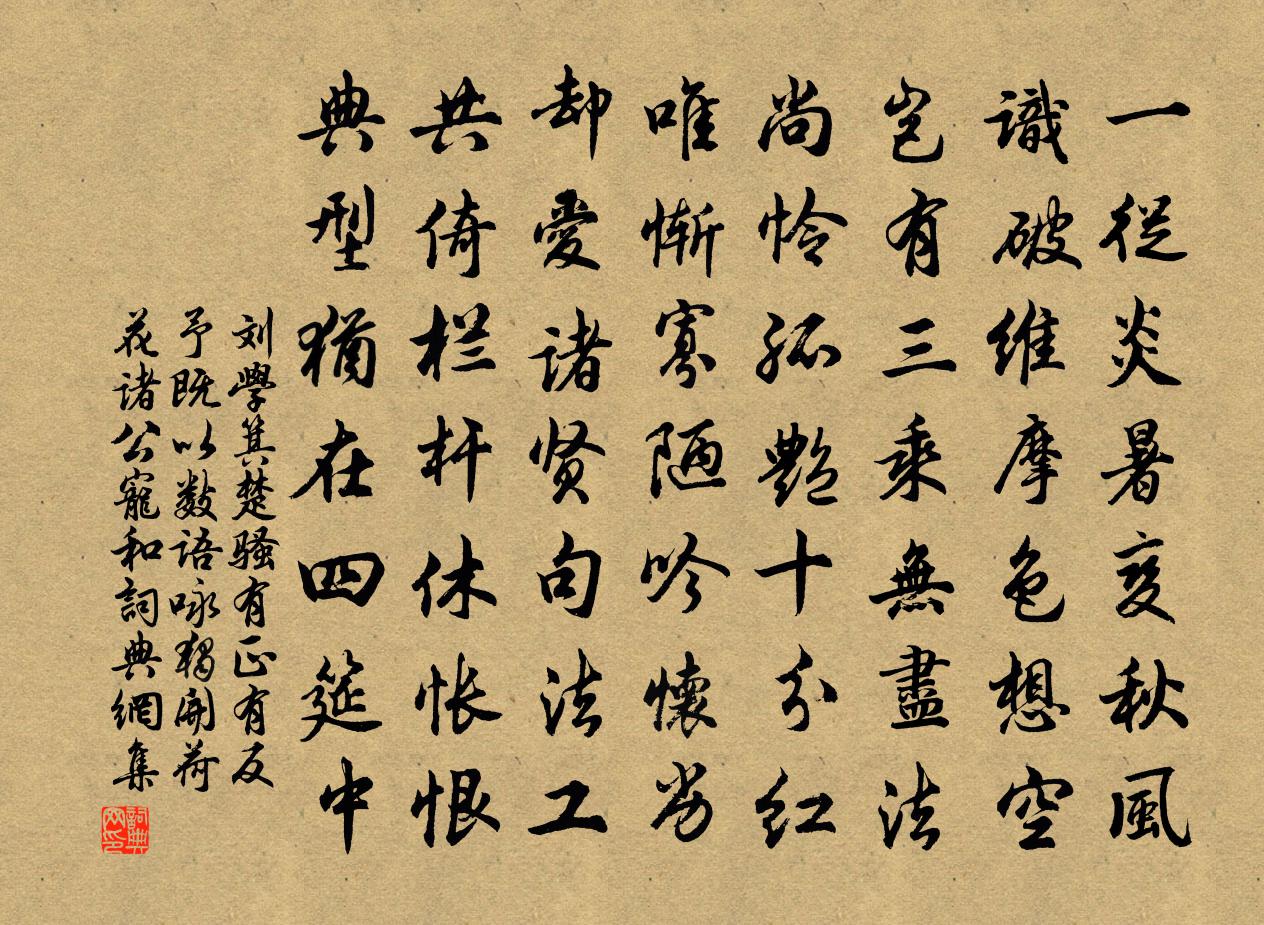 一從炎暑变秋風
識破維摩色想空
岂有三乘無盡法
尚怜孤艷十分红
唯惭寡陋吟懷劣
却愛諸贤句法工
共倚栏杆休怅恨
典型猶在四筵中
刘學箕楚骚有正有反
予既以数語咏獨開荷
花諸公寵和詞典網集
詞典网印